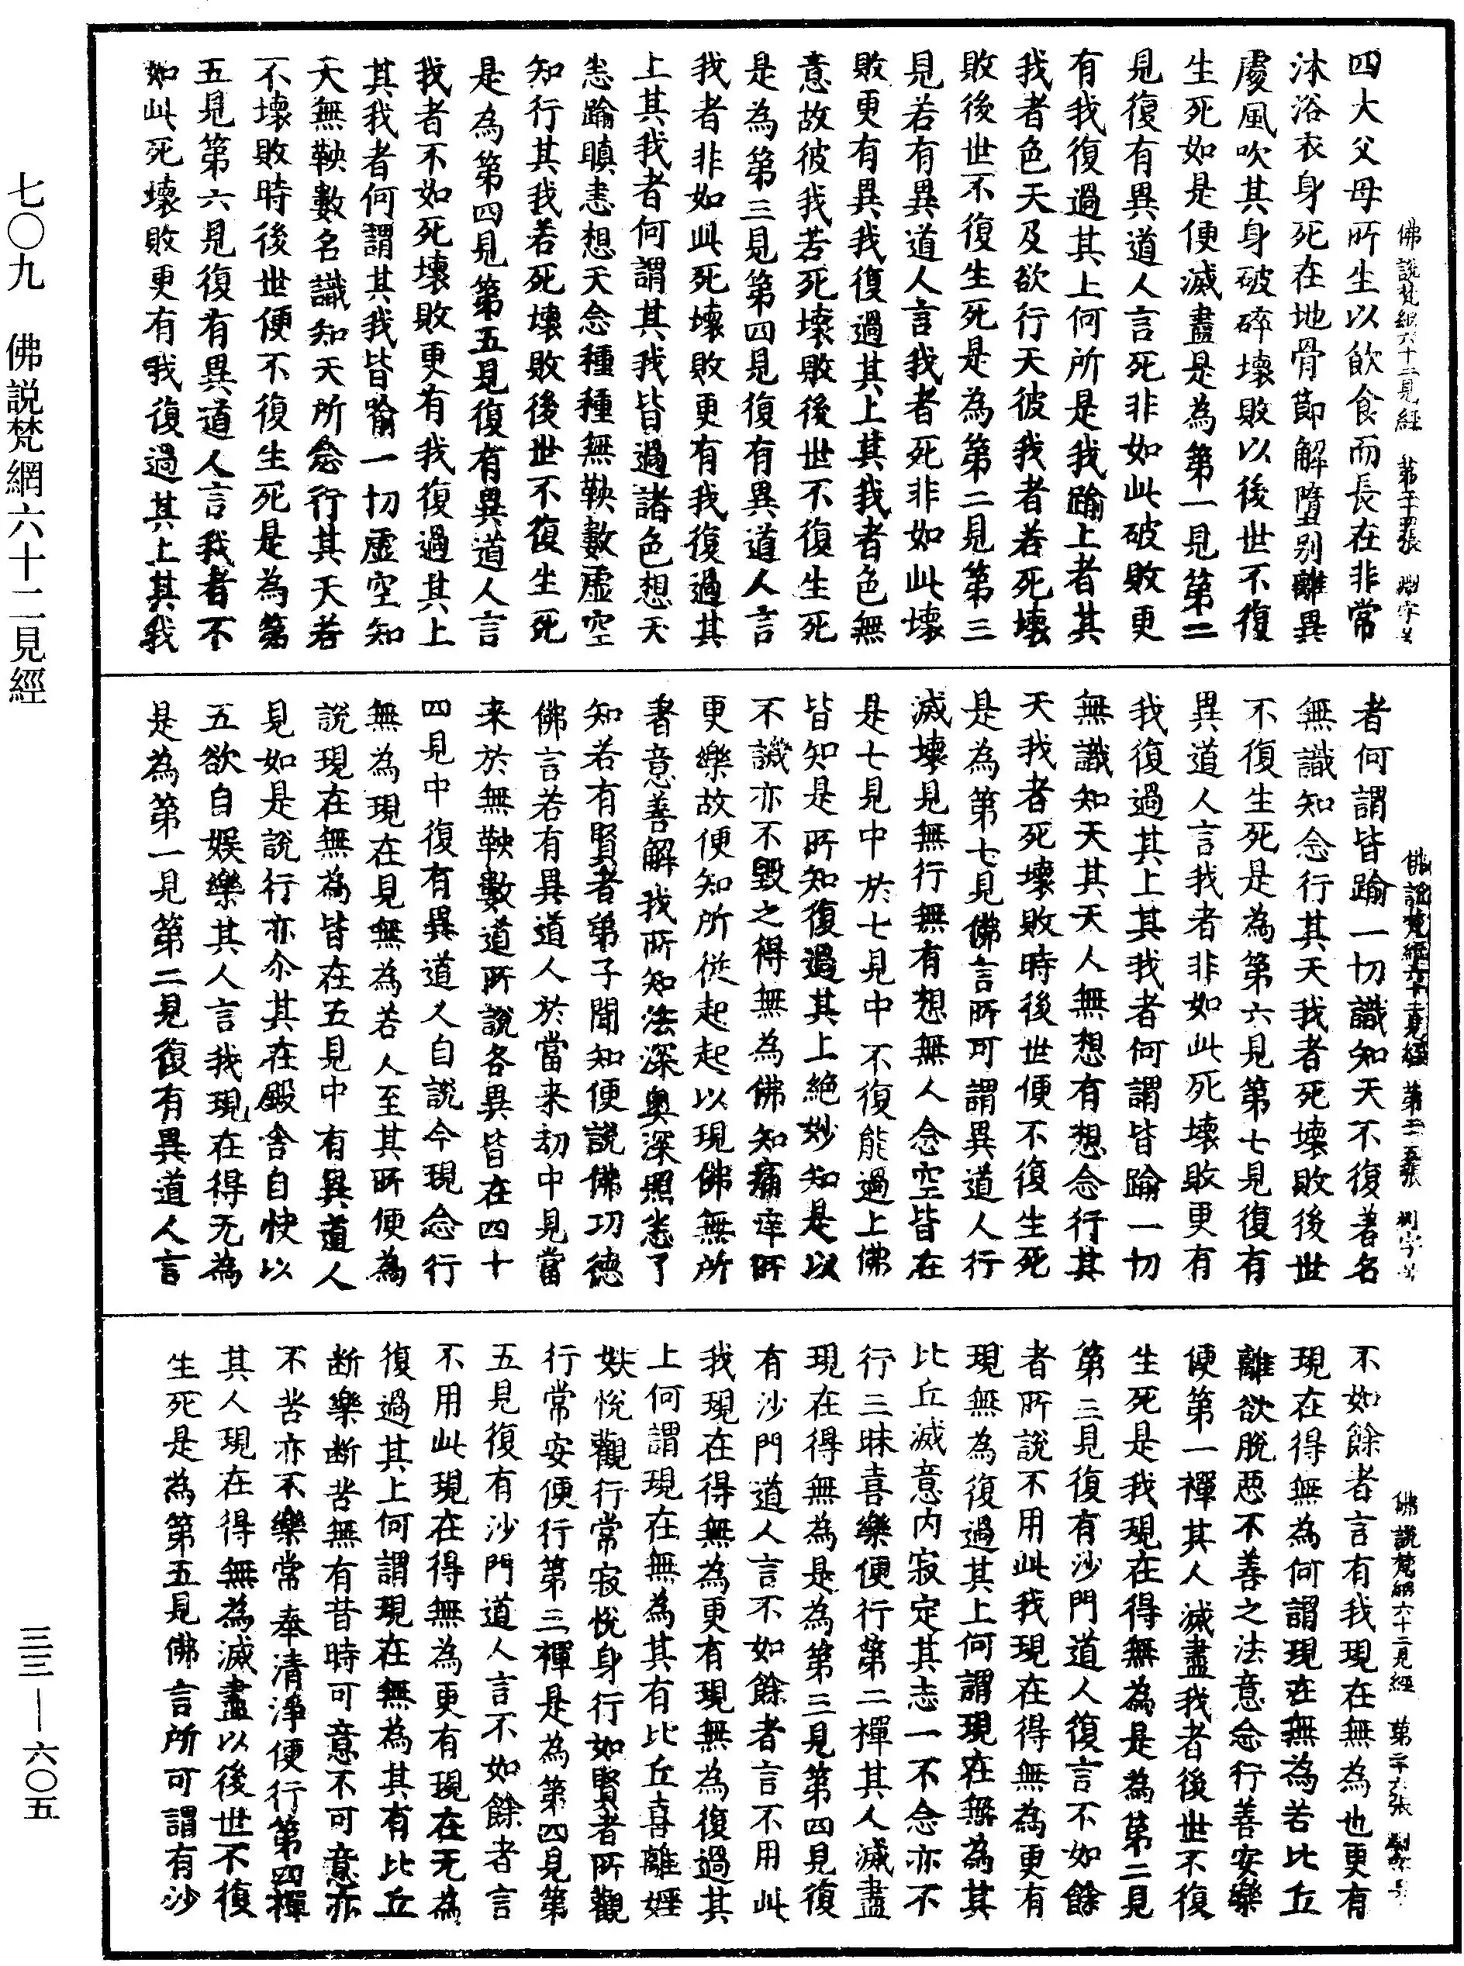 七〇九　佛説梵網六十二見經
三三—六〇五
四大父母所生以飲食而長在非常
沐浴衣身死在地骨節解墮別離異
處風吹其身破碎壞敗以後世不復
生死如是便滅盡是為第一見第二
見復有異道人言死非如此破敗更
有我復過其上何所是我踰上者其
我者色天及欲行天彼我者若死壞
敗後世不復生死是為第二見第三
見若有異道人言我者死非如此壞
敗更有異我復過其上其我者色無
意故彼我若死壞敗後世不復生死
是為第三見第四見復有異道人言
我者非如此死壞敗更有我復過其
上其我者何謂其我皆過諸色想天
恚踰瞋恚想天念種種無鞅數虛空
知行其我若死壞敗後世不復生死
是為第四見第五見復有異道人言
我者不如死壞敗更有我復過其上
其我者何謂其我皆喻一切虛空知
天無鞅數名識知天所念行其天若
不壞敗時後世便不復生死是為第
五見第六見復有異道人言我者不
如此死壞敗更有我復過其上其我
者何謂皆踰一切識知天不復著名
無識知念行其天我者死壞敗後世
不復生死是為第六見第七見復有
異道人言我者非如此死壞敗更有
我復過其上其我者何謂皆踰一切
無識知天其天人無想有想念行其
天我者死壞敗時後世便不復生死
是為第七見佛言所可謂異道人行
滅壞見無行無有想無人念空皆在
是七見中於七見中不復能過上佛
皆知是所知復過其上絕妙知是以
不譏亦不毀之得無為佛知痛痒所
更樂故便知所從起起以現佛無所
著意善解我所知法深奧深照悉了
知若有賢者弟子聞知便說佛功德
佛言若有異道人於當来劫中見當
来於無鞅數道所說各異皆在四十
四見中復有異道人自說今現念行
無為現在見無為若人至其所便為
說現在無為皆在五見中有異道人
見如是說行亦尒其在殿舍自快以
五欲自娛樂其人言我現在得无為
是為第一見第二見復有異道人言
不如餘者言有我現在無為也更有
現在得無為何謂現在無為若比丘
離欲脫惡不善之法意念行善安樂
便第一禪其人滅盡我者後世不復
生死是我現在得無為是為第二見
第三見復有沙門道人復言不如餘
者所說不用此我現在得無為更有
現無為復過其上何謂現在無為其
比丘滅意內寂定其志一不念亦不
行三昧喜樂便行第二禪其人滅盡
現在得無為是為第三見第四見復
有沙門道人言不如餘者言不用此
我現在得無為更有現無為復過其
上何謂現在無為其有比丘喜離婬
妷悅觀行常寂悅身行如賢者所觀
行常安便行第三禪是為第四見第
五見復有沙門道人言不如餘者言
不用此現在得無為更有現在无為
復過其上何謂現在無為其有比丘
斷樂斷苦無有昔時可意不可意亦
不苦亦不樂常奉清淨便行第四禪
其人現在得無為滅盡以後世不復
生死是為第五見佛言所可謂有沙